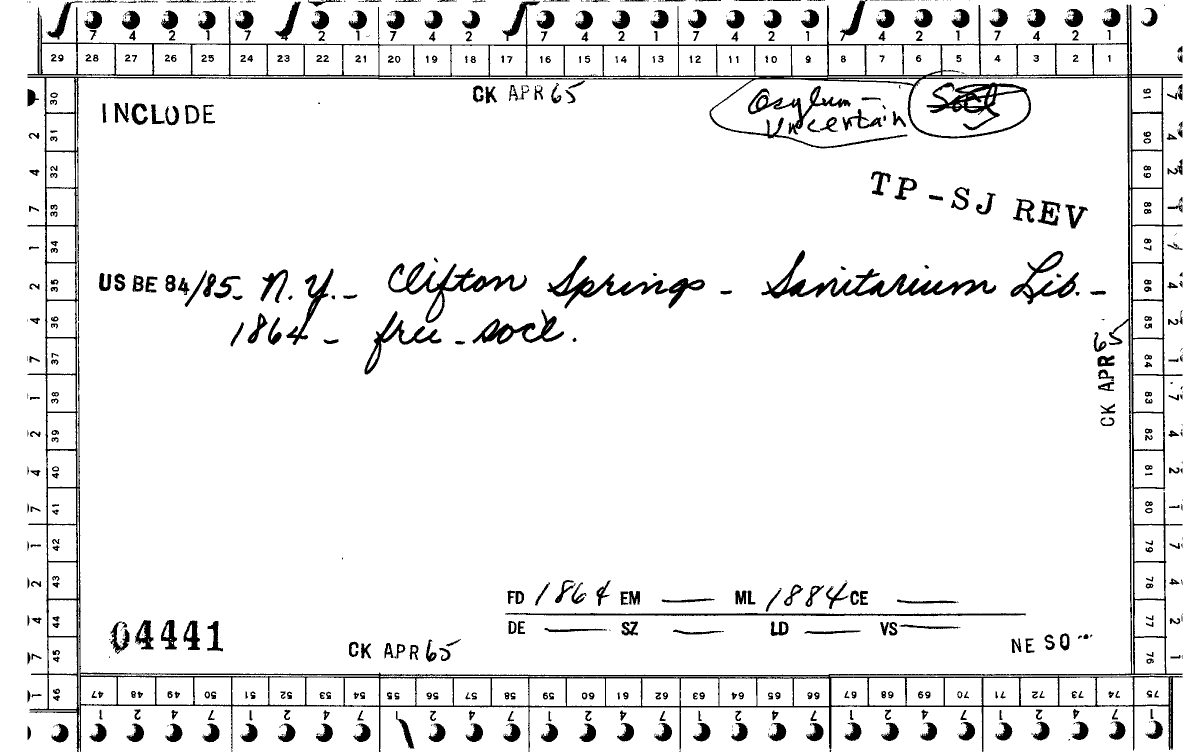 7 4 2 1 7 4 2 1 7 4 2 1 7 4 2 1 7 4 2 1 7 4 2 1 7 4 2 1
29 28 27 26 25 24 23 22 21 20 19 18 17 16 15 14 13 12 11 10 9 8 7 6 5 4 3 2 1
INCLUDE
CK APR 65
Asylum -
Uncertain
Socl
TP-SJ REV
US BE 84/85- N.Y. - Clifton Springs - Sanitarium Lib. -
1864 - free - socl.
CK APR 65
FD 1864 EM — ML 1884 CE —
DE — SZ — LD — VS —
04441
CK APR 65
NE SO
30 31 32 33 34 35 36 37 38 39 40 41 42 43 44 45 46
91 90 89 88 87 86 85 84 83 82 81 80 79 78 77 76
47 48 49 50 51 52 53 54 55 56 57 58 59 60 61 62 63 64 65 66 67 68 69 70 71 72 73 74 75
1 2 4 7 1 2 4 7 1 2 4 7 1 2 4 7 1 2 4 7 1 2 4 7 1 2 4 7 1